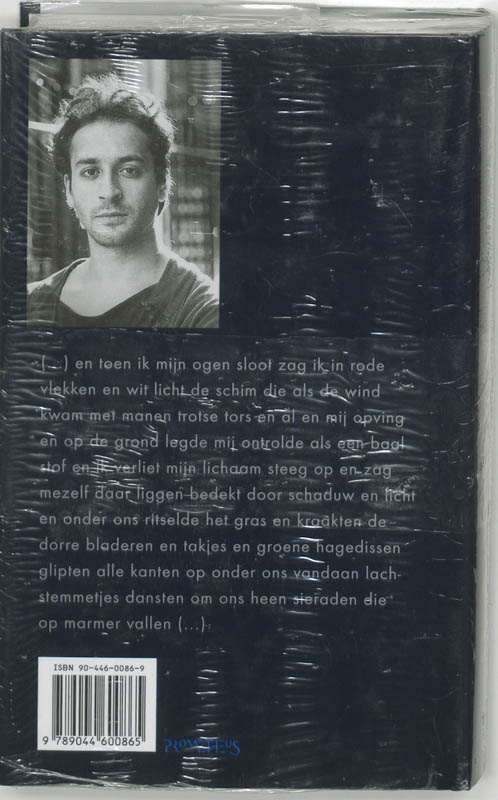 (...) en toen ik mijn ogen sloot zag ik in rode
vlekken en wit licht de schim die als de wind
kwam met manen trotse tors en al en mij opving
en op de grond legde mij ontrolde als een baal
stof en ik verliet mijn lichaam steeg op en zag
mezelf daar liggen bedekt door schaduw en licht
en onder ons ritselde het gras en kraakten de
dorre bladeren en takjes en groene hagedissen
glipten alle kanten op onder ons vandaan lach-
stemmetjes dansten om ons heen sieraden die
op marmer vallen (...)
ISBN 90-446-0086-9
9 789044 600865
PROMETHEUS